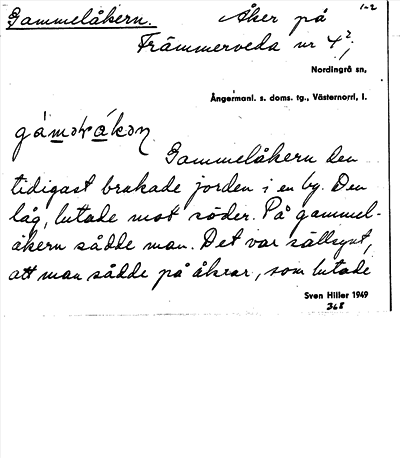 Gammelåkern. Åker på 1-2
Främmerveda nr 4²,
Nordingrå sn,
Ångermanl. s. doms. tg., Västernorrl. l.
Gammelåkern den
tidigast brukade jorden i en by. Den
låg, lutade mot söder. På gammel-
åkern sådde man. Det var sällsynt,
att man sådde på åkrar, som lutade
Sven Hiller 1949
368